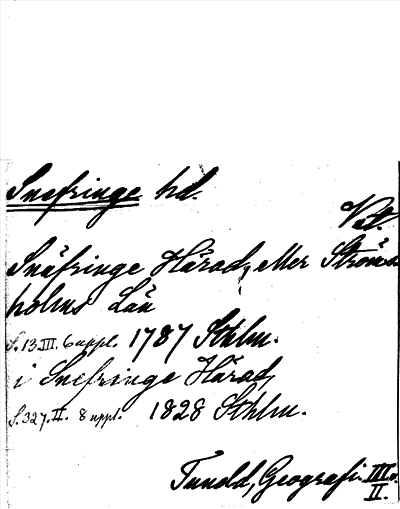 Snefringe hd.
Vstm.
Snäfringe Härad, eller Ströms-
holms Län
S. 13. III. 6 uppl. 1787 Sthlm.
i Snefringe Härad,
S. 327. II. 8 uppl. 1828 Sthlm.
Tuneld, Geografi. III o.
II.